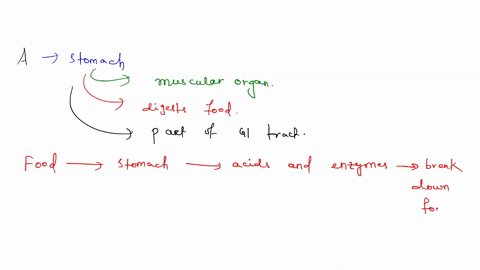 A → stomach
muscular organ.
digests food.
part of GI tract.
Food → stomach → acids and enzymes → break
down
fo.